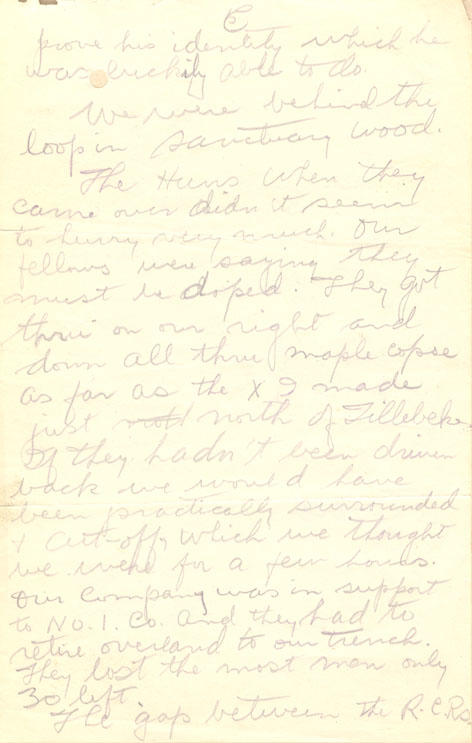 prove his identity which he
was luckily able to do.
We were behind the
loop in Sanctuary Wood.
The Huns when they
came over didn't seem
to hurry very much. Our
fellows were saying they
must be doped. They got
thru on our right and
down all thru maple copse
as far as the X I made
just north of Zillebeke.
If they hadn't been driven
back we would have
been practically surrounded
+ cut-off, which we thought
we were for a few hours.
Our Company was in support
to No. 1. Co. and they had to
retire overland to our trench.
They lost the most men only
30 left.
The gap between the R.C.Rs